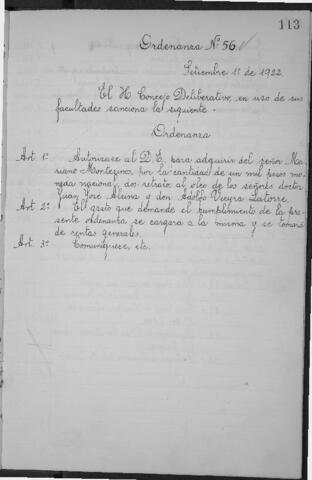 113
Ordenanza Nº 56
Setiembre 1º de 1922.
El H. Concejo Deliberativo, en uso de sus
facultades sanciona la siguiente.
Ordenanza
Art. 1º Autorizase al D. E. para adquirir del señor Ma-
riano Montesino, por la cantidad de un mil pesos mo-
neda nacional, dos retrato al óleo de los señores doctor
Juan José Alsina y don Adolfo Vieyra Latorre.
Art. 2º El gasto que demande el cumplimiento de la pre-
sente ordenanza se cargará a la misma y se tomará
de rentas generales.
Art. 3º Comuníquese, etc.